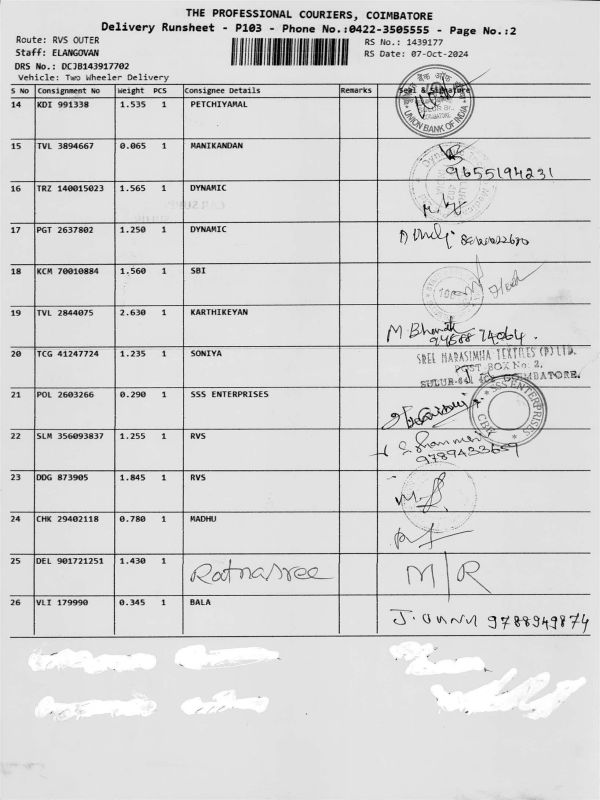 THE PROFESSIONAL COURIERS, COIMBATORE
Delivery Runsheet - P103 - Phone No.:0422-3505555 - Page No.:2
Route: RVS OUTER
RS No.: 1439177
Staff: ELANGOVAN
RS Date: 07-Oct-2024
DRS No.: DCJB143917702
Vehicle: Two Wheeler Delivery
S No Consignment No Weight PCS Consignee Details Remarks Seal & Signature
14 KDI 991338 1.535 1 PETCHIYAMAL
UNION BANK OF INDIA
15 TVL 3894667 0.065 1 MANIKANDAN
9655194231
16 TRZ 140015023 1.565 1 DYNAMIC
17 PGT 2637802 1.250 1 DYNAMIC
18 KCM 70010884 1.560 1 SBI
19 TVL 2844075 2.630 1 KARTHIKEYAN
M Bharath
74064.
20 TCG 41247724 1.235 1 SONIYA
SREE NARASIMHA TEXTILES (P) LTD.
POST BOX No: 2,
COIMBATORE.
21 POL 2603266 0.290 1 SSS ENTERPRISES
SSS ENTERPRISES
CBE
22 SLM 356093837 1.255 1 RVS
9789433659
23 DDG 873905 1.845 1 RVS
24 CHK 29402118 0.780 1 MADHU
25 DEL 901721251 1.430 1 Ratnasree M/R
26 VLI 179990 0.345 1 BALA
9788949874